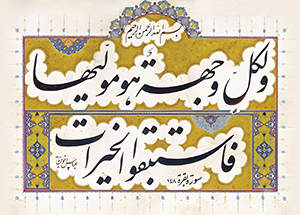 بسم الله الرحمن الرحیم
ولکل وجهة هو مولیها
فاستبقوا الخیرات
سورة بقرة ١٤٨